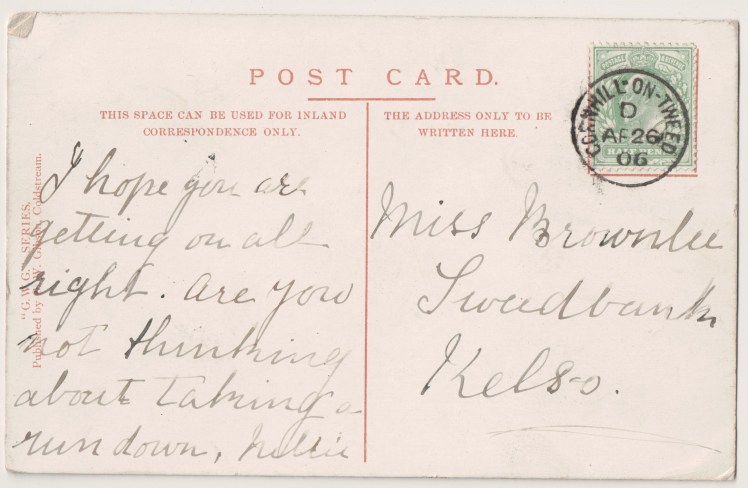 POST CARD.
THIS SPACE CAN BE USED FOR INLAND
CORRESPONDENCE ONLY.
THE ADDRESS ONLY TO BE
WRITTEN HERE.
CORNHILL-ON-TWEED
D
AP 26
06
HALF PENNY
I hope you are
getting on all
right. Are you
not thinking
about taking a
run down, Nellie
Miss Brownlee
Tweedbank
Kelso.
"G.W.G." SERIES.
Published by G. W. Gibson, Coldstream.